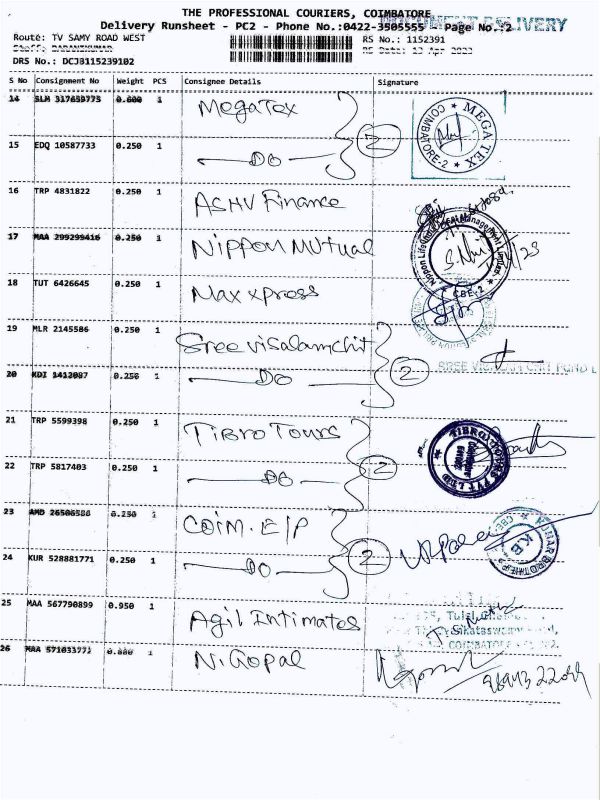 THE PROFESSIONAL COURIERS, COIMBATORE
Delivery Runsheet - PC2 - Phone No.:0422-3505555 - Page No.:2
DELIVERY
Route: TV SAMY ROAD WEST
RS No.: 1152391
Staff: DARANIKUMAR
RS Date: 13 Apr 2023
DRS No.: DCJB115239102
S No Consignment No Weight PCS Consignee Details Signature
14 SLM 317639773 0.600 1 MegaTex
MEGA TEX COIMBATORE-2
15 EDQ 10587733 0.250 1 DO
2
16 TRP 4831822 0.250 1 ASHV Finance
17 MAA 299299416 0.250 1 Nippon Mutual
Nippon Life
CBE-2
18 TUT 6426645 0.250 1 Maxxpress
19 MLR 2145586 0.250 1 Sree visalamchit
SREE VISALAM CHIT FUND L
20 KDI 1412087 0.250 1 DO
2
21 TRP 5599398 0.250 1 TIBRO TOURS
TIBRO TOURS PVT LTD
22 TRP 5817403 0.250 1 DO
2
23 AMD 26506586 0.250 1 COIM. E/P
K.B
24 KUR 528881771 0.250 1 DO
2
25 MAA 567790899 0.950 1 Agil Intimates
COIMBATORE
26 MAA 571033771 0.880 1 N. Gopal